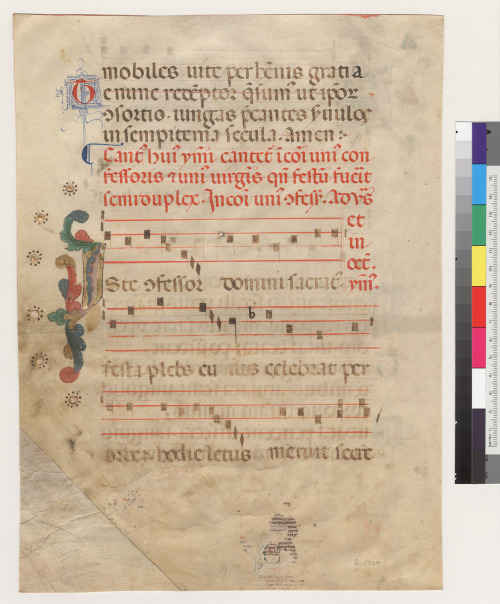 mobiles uite perhēnis gratia
Te nunc receptor q̄sum᷒ ut ipōr
ↄsortio iungas p̄cantes seruulos
in sempiterna secula. Amen:
Cant᷒ hui᷒ ymni cantet᷒ ī cōi uni᷒ con
fessoris & uni᷒ uirginis qn̄ festū fuerit
semiduplex. In cōi uni᷒ ↄfess̄. Ad vs̄
et
in
oct̄.
ym̄.
Iste ↄfessor domini sacrat᷒.
festa plebs cu ius celebrat per
orbez hodie letus meruit secre